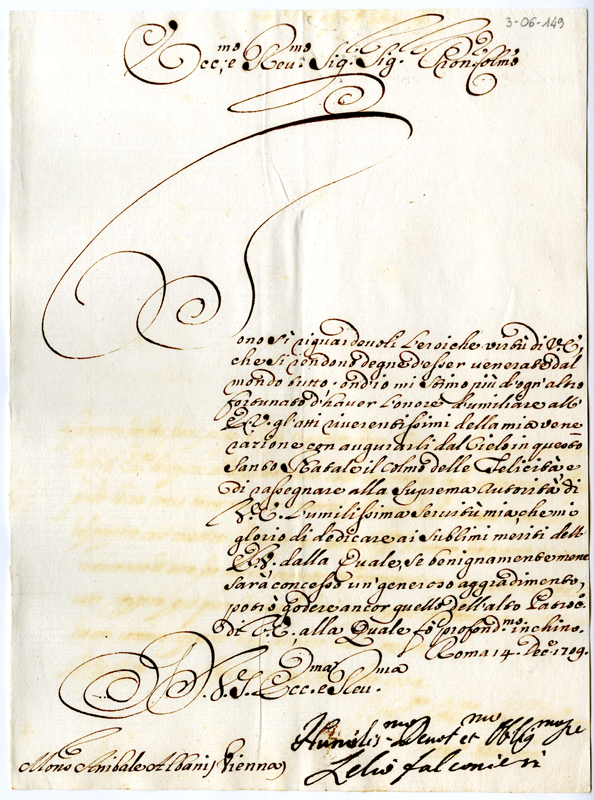 3-06-149
Ecc.mo e Reu.mo Sig.r Sig.r P̃ron Colmo
Sono sì riguardeuoli l'eroiche uirtù di V.E,
che si rendono degne d'esser uenerate dal
mondo tutto, ond'io mi stimo più d'ogn'altro
fortunato d'hauer l'onore d'umiliare all'
E.V. gl'atti riuerentissimi della mia vene
razione con augurarli dal Cielo in questo
Santo Natale il colmo delle Felicità, e
di rassegnare alla Suprema Autorità di
V.E. l'umilissima Seruitù mia, che mi
glorio di dedicare ai Sublimi meriti dell'
E.V. dalla Quale, se benignamente mene
sarà concesso un generoso aggradimento,
potrò godere ancor quello dell'alto Patroc.o
di V.E, alla Quale fò profond.mo inchino.
Roma 14. Dec.e 1709.
D. V. S. Ecc.ma e Reu.ma
Mons.r Anibale Albani, Vienna
Humilis.mo Deuot.mo et Oblig.mo Se.re
Lelio falconieri